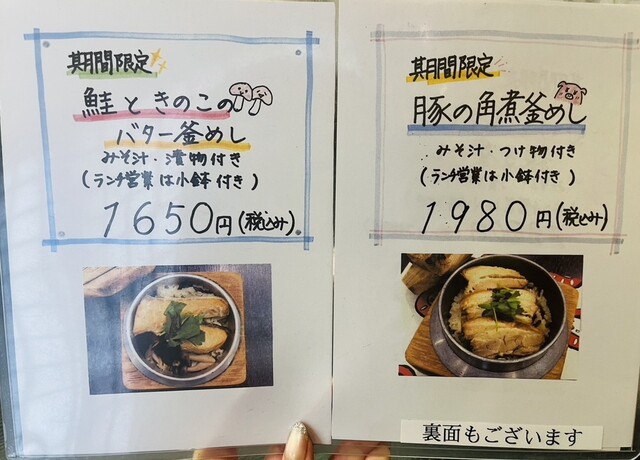 期間限定
鮭ときのこの
バター釜めし
みそ汁・漬物付き
(ランチ営業は小鉢付き)
1650円(税込み)
期間限定
豚の角煮釜めし
みそ汁・つけ物付き
(ランチ営業は小鉢付き)
1980円(税込み)
裏面もございます